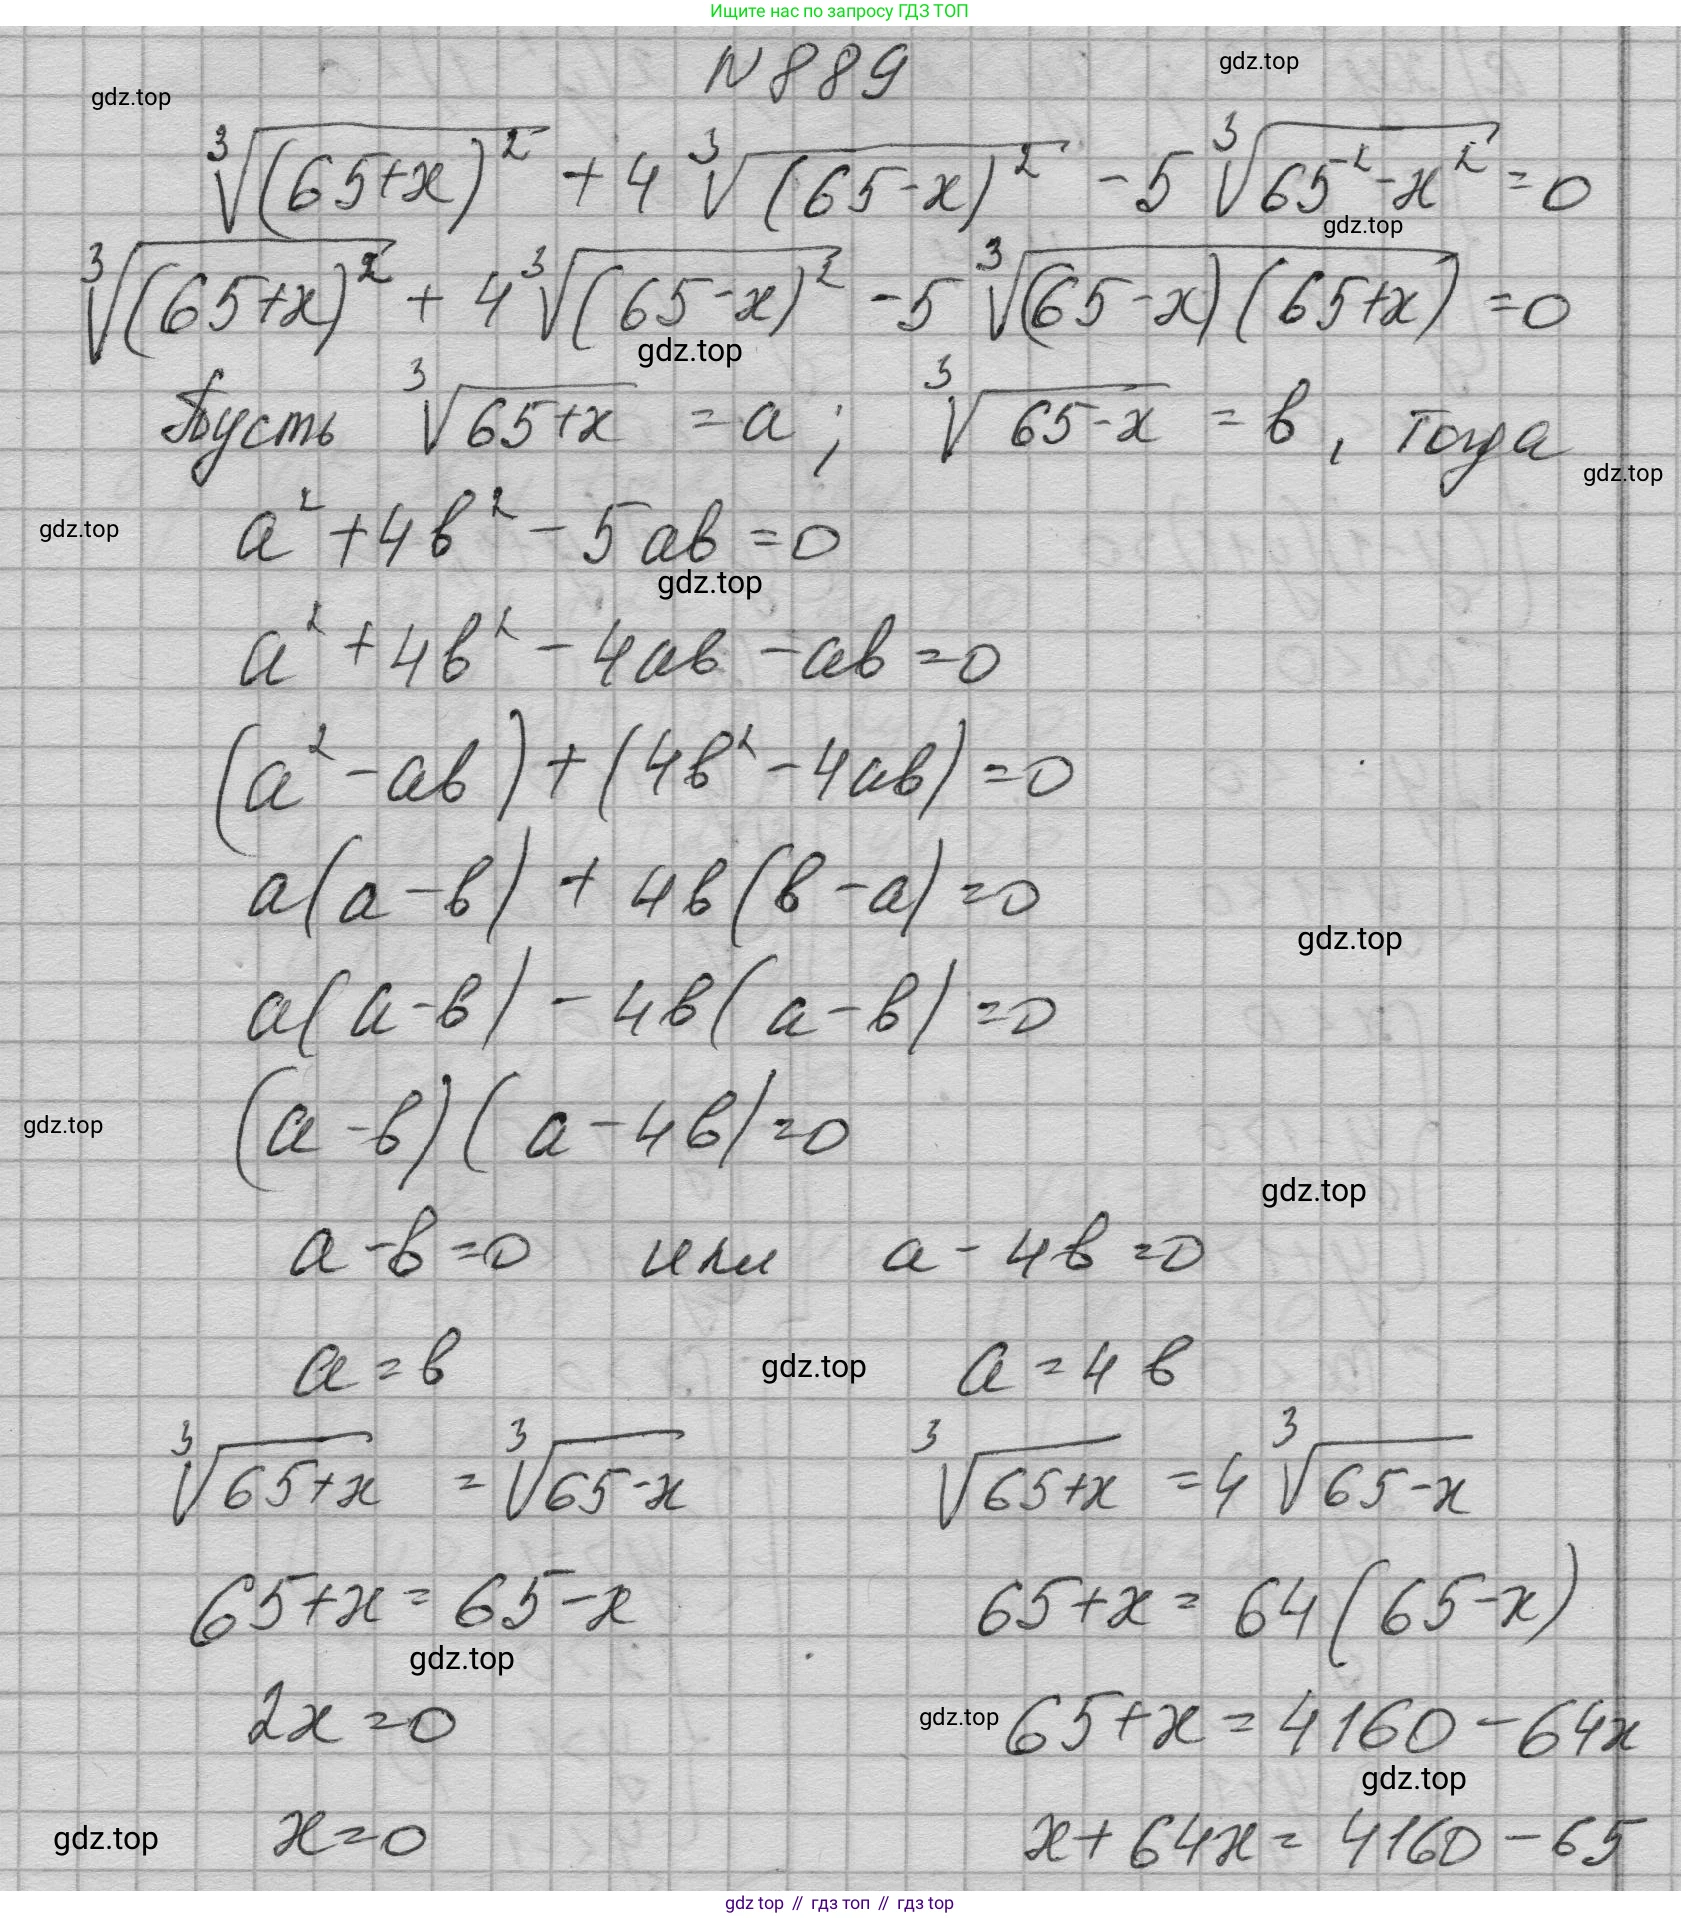 Ищите нас по запросу ГДЗ ТОП
N 889
gdz.top
gdz.top
∛(65+x)² + 4∛(65-x)² - 5∛65²-x² = 0
gdz.top
∛(65+x)² + 4∛(65-x)² - 5∛(65-x)(65+x) = 0
gdz.top
Пусть ∛65+x = a; ∛65-x = в, тогда
gdz.top
gdz.top
a² + 4в² - 5aв = 0
gdz.top
a² + 4в² - 4aв - aв = 0
(a² - aв) + (4в² - 4aв) = 0
a(a - в) + 4в(в - a) = 0
gdz.top
a(a - в) - 4в(a - в) = 0
gdz.top
(a - в)(a - 4в) = 0
gdz.top
a - в = 0 или a - 4в = 0
a = в gdz.top a = 4в
∛65+x = ∛65-x ∛65+x = 4∛65-x
65+x = 65-x 65+x = 64(65-x)
gdz.top
2x = 0 gdz.top 65+x = 4160 - 64x
gdz.top
gdz.top x = 0 x + 64x = 4160 - 65
gdz top // гдз топ // гдз top